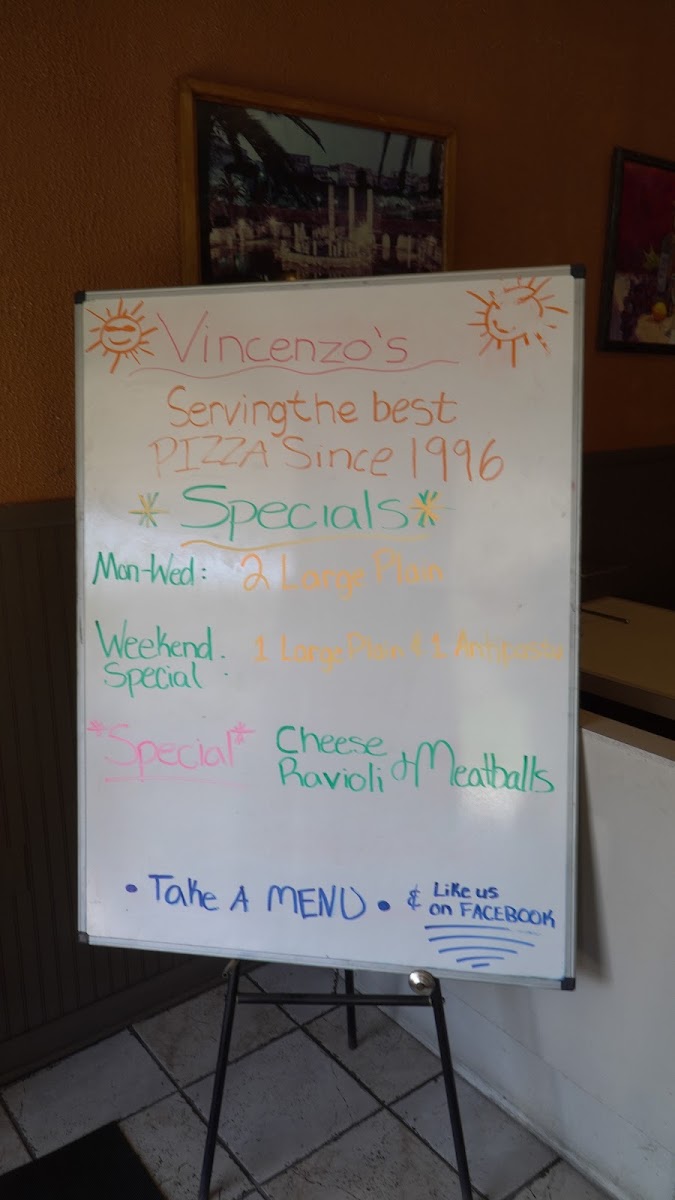 Vincenzo's
Serving the best
PIZZA Since 1996
*Specials*
Mon-Wed: 2 Large Plain
Weekend Special: 1 Large Plain & 1 Antipasto
*Special* Cheese Ravioli & Meatballs
• Take A MENU • & Like us on FACEBOOK